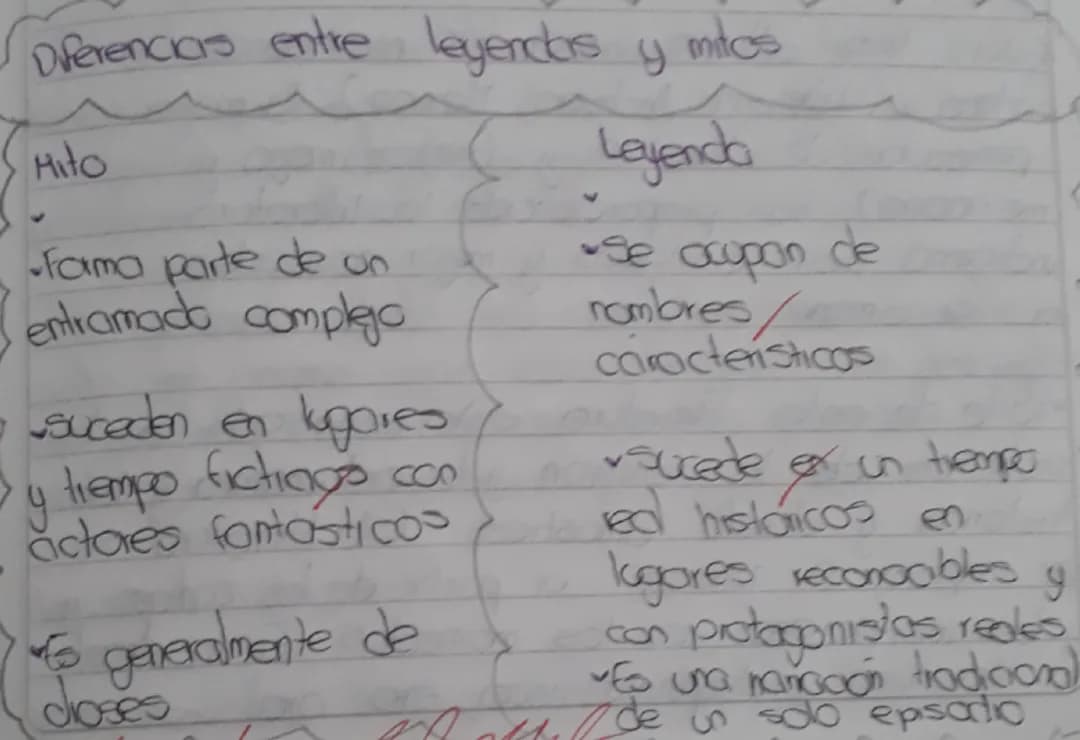 Diferencias entre leyendas y mitos
Mito
Forma parte de un
entramado complejo
suceden en lugares
y tiempo ficticios con
actores fantásticos
Es generalmente de
dioses
Leyenda
Se ocupan de
nombres
característicos
Sucede en un tiempo
real históricos en
lugares reconocibles y
con protagonistas reales
Es una narración tradicional
de un solo episodio